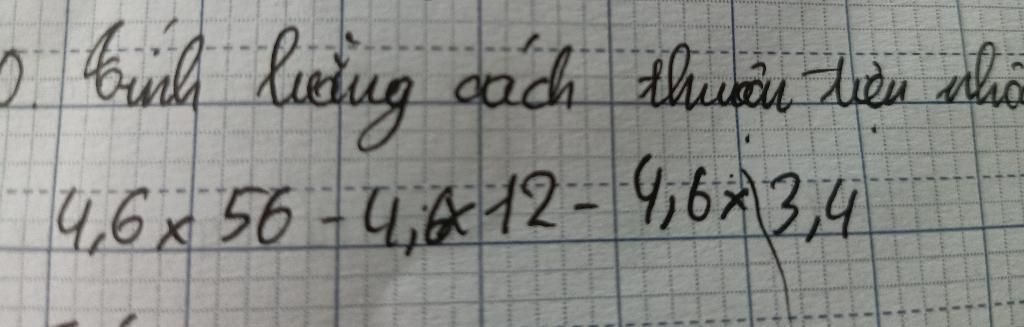 Tính bằng cách thuận tiện nhấ
4,6 x 56 - 4,6 x 12 - 4,6 x 3,4